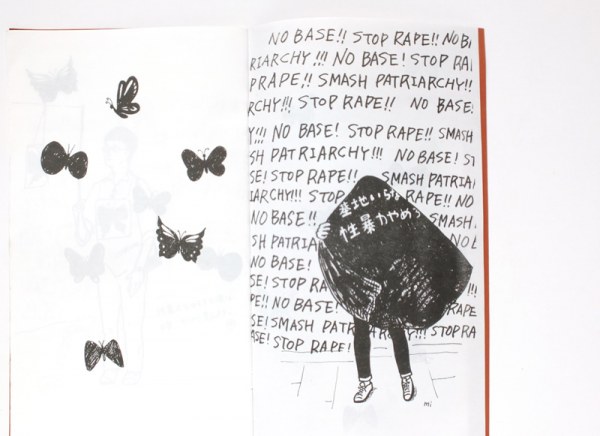 NO BASE!! STOP RAPE!! NO B
RIARCHY!!! NO BASE! STOP RA
PRAPE!! SMASH PATRIARCHY!!
RCHY!!! STOP RAPE!! NO BASE!
Y!!! NO BASE! STOP RAPE!! SMASH
SH PATRIARCHY!!! NO BASE! ST
SE! STOP RAPE!! SMASH PATRIA
IARCHY!!! STOP RAPE!! NO
NO BASE!! SMASH
SH PATRIA NO B
NO BASE!
SE! STOP RA !!!
PE!! NO BASE! RAPE
SE! SMASH PATRIARCHY!!! STOP RA
ASE! STOP RAPE!
基地いら
性暴力やめ
mi